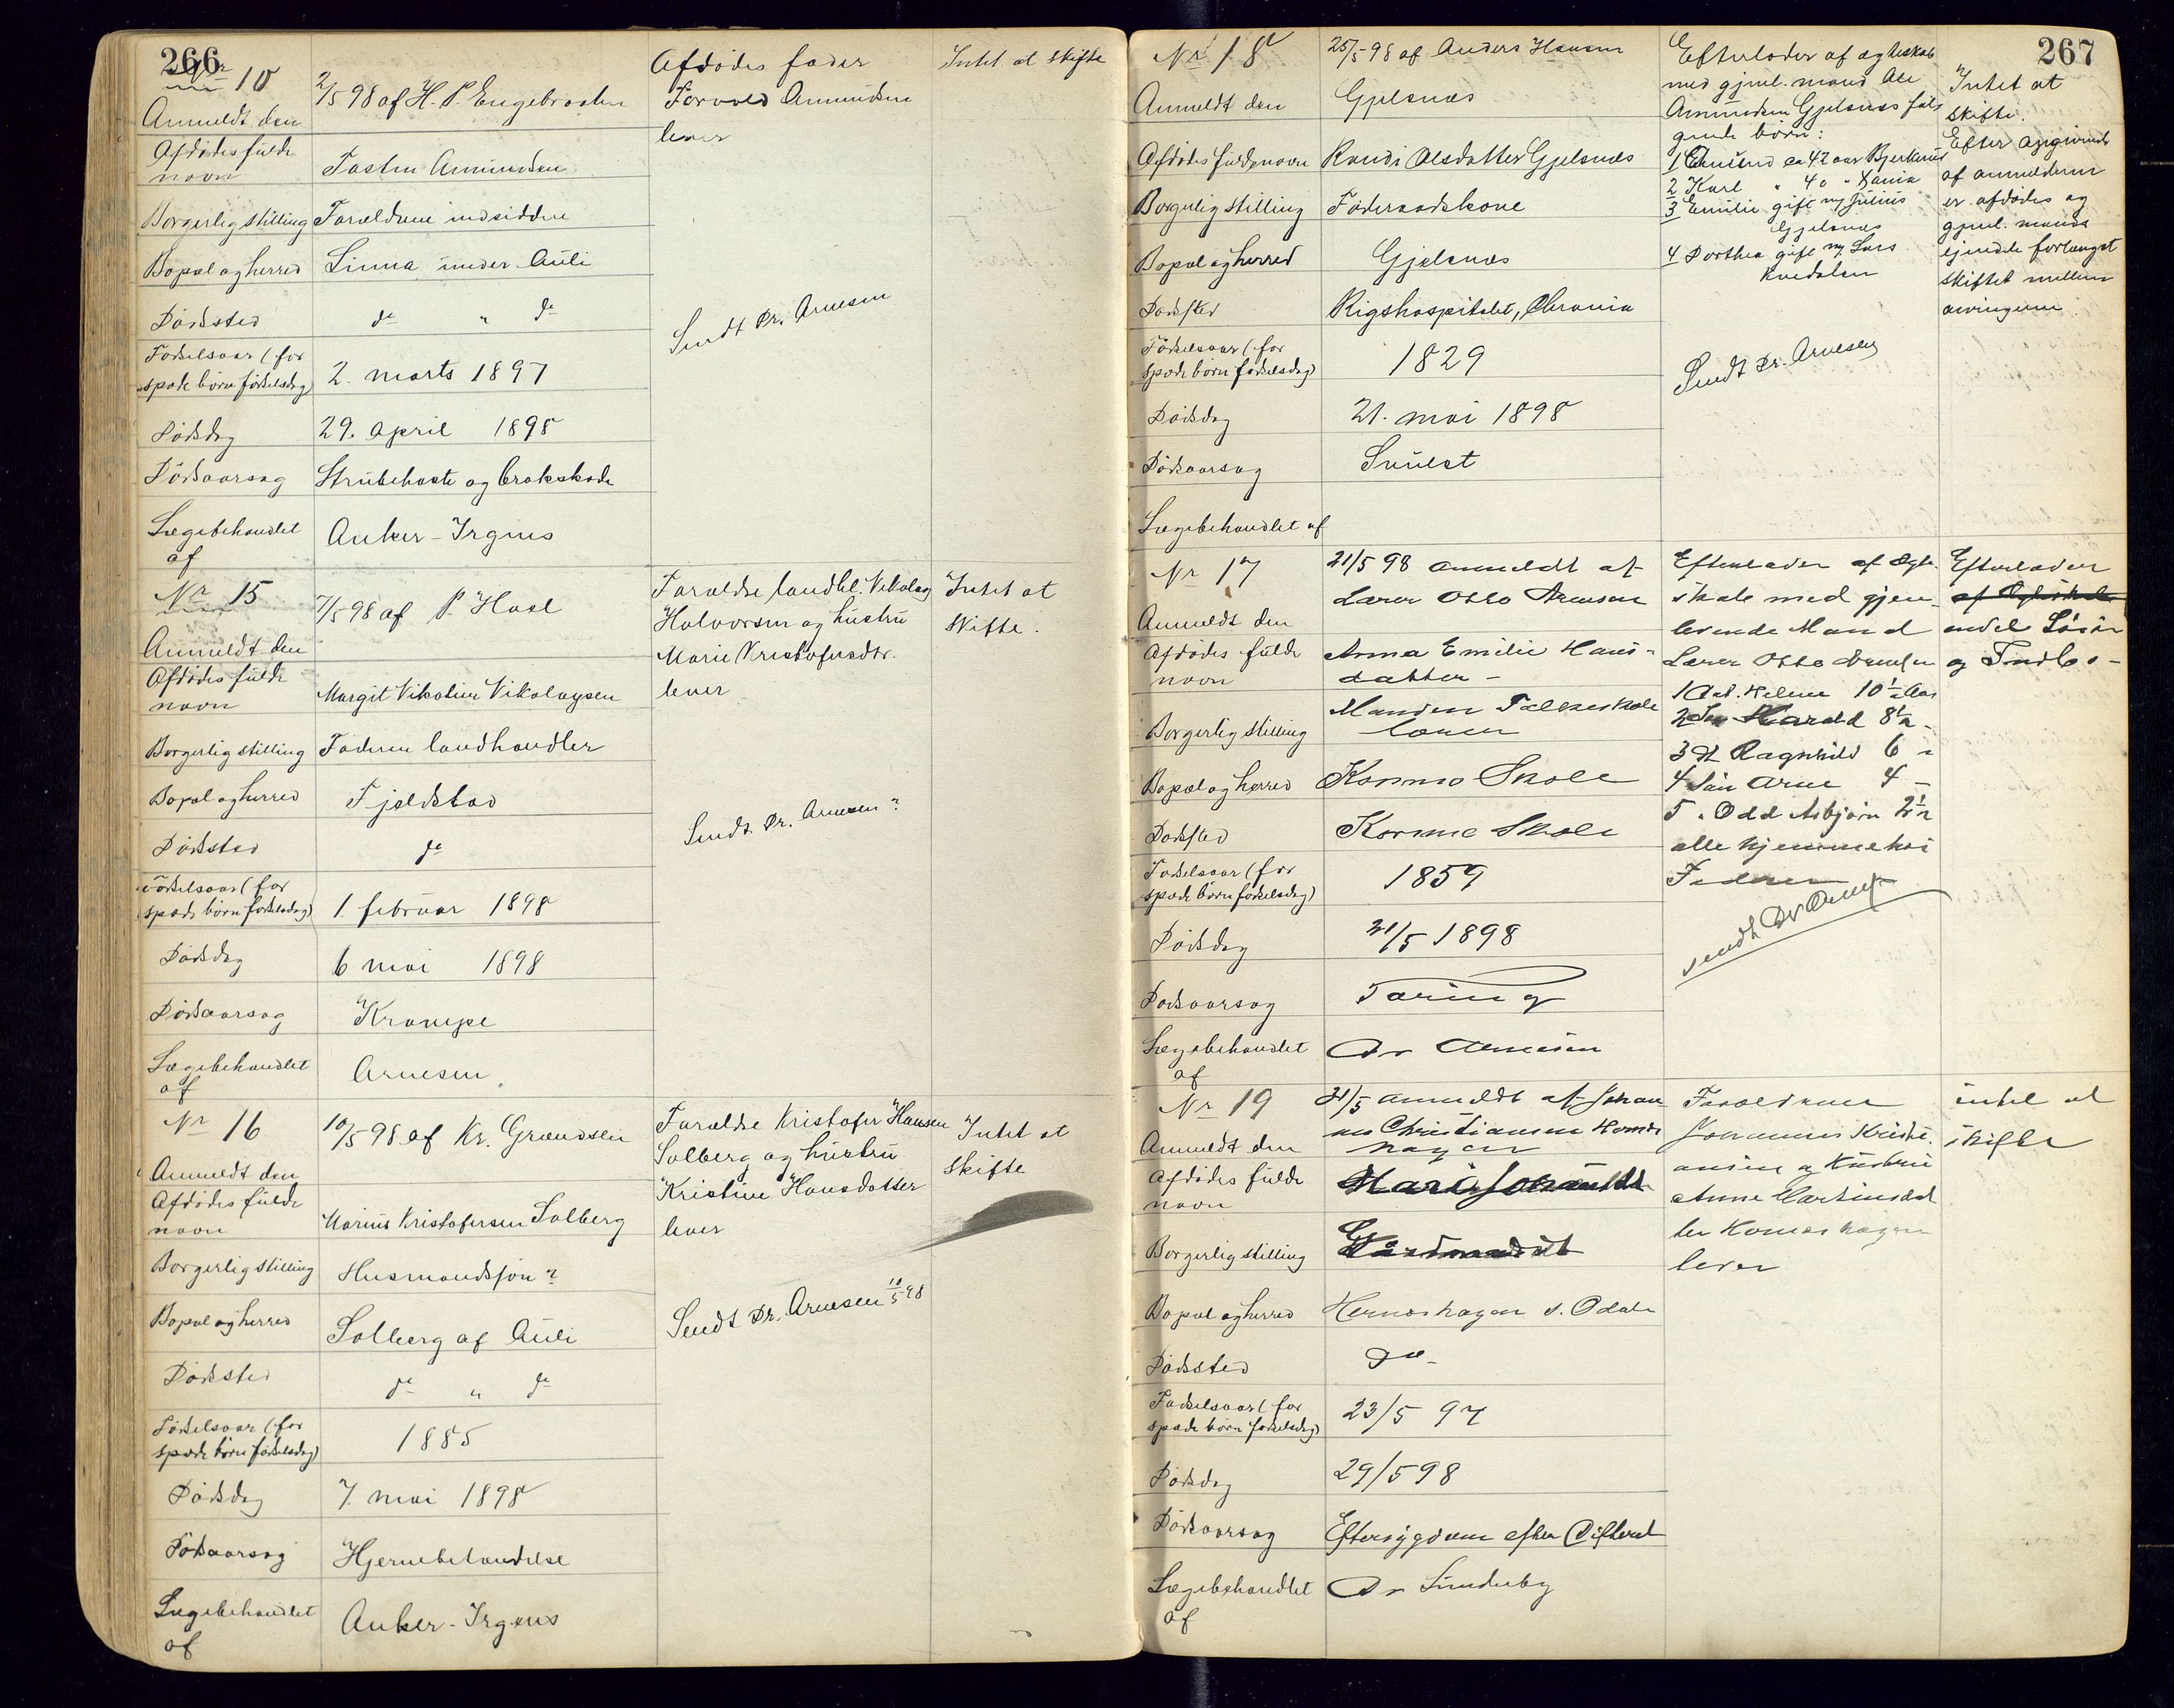 266
Nr 10
Anmeldt den
2/5 98 af H. P. Engebraaten
Afdødes fulde
navn
Tosten Amundsen
Borgerlig stilling
Forældrene indsiddere
Bopæl og herred
Linna under Auli
Dødssted
do " do
Fødselsaar (for
spæde børn fødselsdag)
2. marts 1897
Dødsdag
29. april 1898
Dødsaarsag
Strubehoste og
Lægebehandlet
af
Anker-Irgens
Afdødes fader
Torvald Amundsen
lever
Sendt Dr. Arnesen
Intet at skifte
Nr 15
Anmeldt den
7/5 98 af P. Haal
Afdødes fulde
navn
Margit Nikoline Nikolaysen
Borgerlig stilling
Faderen landhandler
Bopæl og herred
Fjeldstad
Dødssted
do
Fødselsaar (for
spæde børn fødselsdag)
1. februar 1898
Dødsdag
6 mai 1898
Dødsaarsag
Krampe
Lægebehandlet
af
Arnesen
Forældre landhl. Nikolay
Halvorsen og hustru
Marie Kristofersdtr.
lever
Sendt Dr. Arnesen
Intet at
skifte.
Nr 16
Anmeldt den
10/5 98 af Kr. Grændsen
Afdødes fulde
navn
Marius Kristofersen Solberg
Borgerlig stilling
Husmandssøn
Bopæl og herred
Solberg af Auli
Dødssted
do " do
Fødselsaar (for
spæde børn fødselsdag)
1885
Dødsdag
7. mai 1898
Dødsaarsag
Hjernebetændelse
Lægebehandlet
af
Anker-Irgens
Forældre Kristofer Hansen
Solberg og hustru
Kristine Hansdatter
lever
Sendt Dr. Arnesen 10/5 98
Intet at
skifte
267
Nr 18
Anmeldt den
25/5 98 af Anders Hansen
Gjelsnæs
Afdødes fulde navn
Randi Olsdatter Gjelsnæs
Borgerlig stilling
Føderaadskone
Bopæl og herred
Gjelsnæs
Dødssted
Rigshospitalet, Chrania
Fødselsaar (for
spæde børn fødselsdag)
1829
Dødsdag
21. mai 1898
Dødsaarsag
Svulst
Lægebehandlet af
Efterlader af ægteskab
med gjenl. mand Ole
Amundsen Gjelsnæs føl-
gende børn:
1 ca 42 aar
2 Karl " 40 "
3 Emilie gift m/ Julius
Gjelsnæs
4 Dorthea gift m/ Lars
Kvedalen
Sendt Dr. Arnesen
Intet at
skifte.
Efter opgivende
af anmelderen
er afdødes og
gjenl. mands
eiendele forlængst
skiftet mellem
arvingerne
Nr 17
Anmeldt den
21/5 98 anmeldt af
Lærer Otto Arnesen
Afdødes fulde
navn
Anna Emilie Hans-
datter
Borgerlig stilling
Manden Folkeskole
lærer
Bopæl og herred
Kormo Skole
Dødssted
Kormo Skole
Fødselsaar (for
spæde børn fødselsdag)
1859
Dødsdag
21/5 1898
Dødsaarsag
Tæring
Lægebehandlet
af
Dr Arnesen
Efterlader af Ægte-
skab med gjen-
levende Mand
Lærer Otto Arnesen
1 Dat. Helene 10 1/2 Aar
2 Søn Harald 8 1/2 -
3 Dt Ragnhild 6 -
4 Søn Arne 4 -
5 " Odd Asbjørn 2 1/2
alle hjemme hos
Faderen
sendt Dr Arnesen
Efterlader
endel Løsøre
og Indbo -
Nr 19
Anmeldt den
31/5 anmeldt af Johan
nes Christiansen Hernes
hagen
Afdødes fulde
navn
Borgerlig stilling
Bopæl og herred
Herneshagen s. Odalen
Dødssted
do -
Fødselsaar (for
spæde børn fødselsdag)
23/5 97
Dødsdag
29/5 98
Dødsaarsag
Eftersygdom efter Difterit
Lægebehandlet
af
Dr Sunderby
Forældrene
Johannes Kristi-
ansen og Hustru
Anne Martinsdat
ter Herneshagen
lever
intet at
skifte